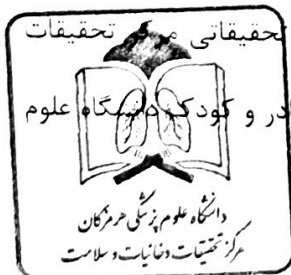 تحقیقاتی مرکز تحقیقات
در و کودک دانشگاه علوم
دانشگاه علوم پزشکی هرمزگان
مرکز تحقیقات دخانیات و سلامت